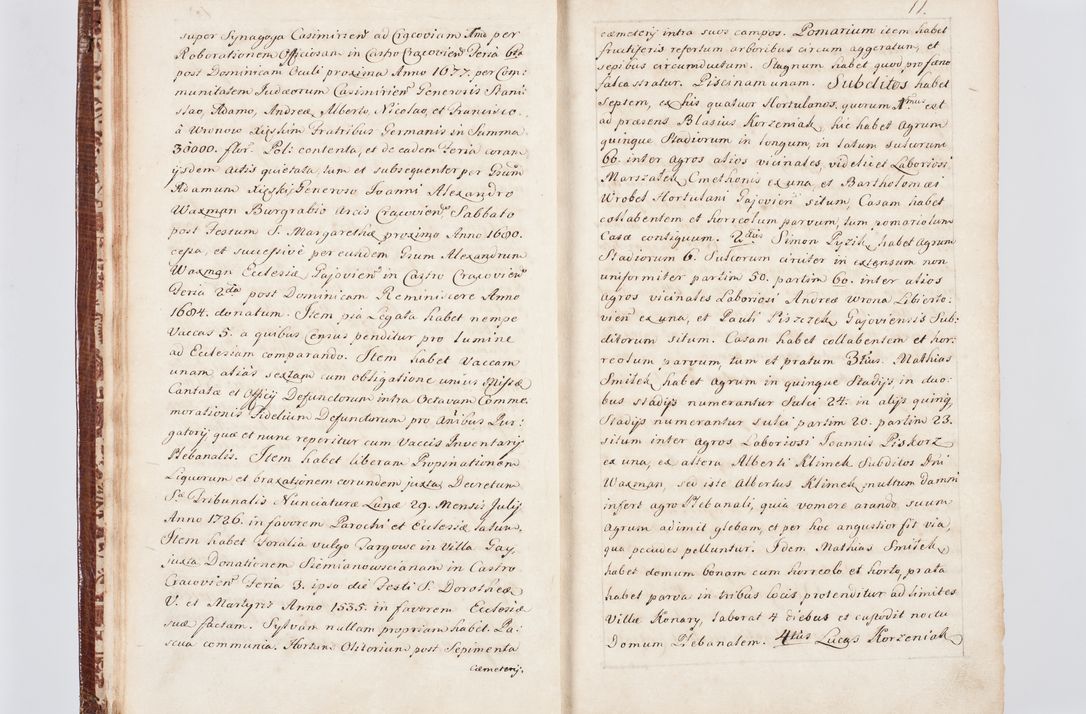 super Synagoga Casimirien ad Cracoviam Ama per
Roborationem Officiosam in Castro Cracovien Feria 6ta
post Dominicam Oculi proxima Anno 1677. per Com:
munitatem Judæorum Casimirien Generosis Stani:
slao, Adamo, Andreæ, Alberto, Nicolao, et Francisco
à Wronow Xięskim Fratribus Germanis in Summa
30000. flor. Pol: contenta, et de eadem Feria coram
ijsdem actis quietata, tum et subsequenter per Grum
Adamum Xięski Generoso Joanni Alexandro
Waxman Burgrabio Arcis Cracovien Sabbato
post Festum S. Margarethæ proximo Anno 1680.
cessa, et successivè per eundem Grum Alexandrum
Waxman Ecclesiæ Gajovien in Castro Cracovien
Feria 2da post Dominicam Reminiscere Anno
1684. donatum. Item pia Legata habet nempe
Vaccas 5. a quibus Census penditur pro Lumine
ad Ecclesiam comparando. Item habet Vaccam
unam aliàs sextam cum obligatione unius Missæ
Cantatæ et Officij Defunctorum intra Octavam Comme:
morationis Fidelium Defunctorum pro Anibus Pur:
gatorij quæ et nunc reperitur cum Vaccis Inventarij
Plebanalis. Item habet liberam Propinationem
Liquorum et braxationem eorundem juxta Decretum
Sa Tribunalis Nunciaturæ Lunæ 29. Mensis Julij
Anno 1726. in favorem Parochi et Ecclesiæ latum.
Item habet Foralia vulgo Targowe in Villa Gay,
juxta Donationem Siemianowscianam in Castro
Cracovien Feria 3. ipso die Festi S. Dorotheæ
V. et Martyris Anno 1535. in favorem Ecclesiæ
suæ factam. Sylvam nullam propriam habet. Pa:
scua communia. Hortum Olitorium post Sepimenta
cæmeterij.
11.
cæmeterij intra suos campos. Pomarium item habet
fructiferis refertum arboribus circum aggeratum, et
sepibus circumductum. Stagnum habet quod pro fæno
falcastratur. Piscinam unam. Subditos habet
Septem, ex his quatuor Hortulanos, quorum 1mus est
ad præsens Blasius Korzeniak, hic habet Agrum
quinque Stadiorum in longum, in latum sulcorum
60. inter agros alios vicinales, videlicet Laboriosi
Marszałek Cmethonis ex una, et Bartholomæi
Wrobel Hortulani Gajovien situm, Casam habet
collabentem et horreolum parvum, tum pomariolum
Casæ contiguum. 2dus Simon Pyzik habet agrum
Stadiorum 6. Sulcorum circiter in extensum non
uniformiter partim 50. partim 60. inter alios
agros vicinales Laboriosi Andreæ Wrona Liberto:
vien ex una, et Pauli Piszczek Gajoviensis Sub:
ditorum situm. Casam habet collabentem et hor:
reolum parvum, tum et pratum 3tius. Mathias
Smiłek habet agrum in quinque Stadijs, in duo:
bus stadijs numerantur Sulci 24. in alijs quinq
Stadijs numerantur sulci partim 20. partim 23.
situm inter agros Laboriosi Joannis Piskorz
ex una, ex altera Alberti Klimek Subditos Dni
Waxman, sed iste Albertus Klimek multum damni
infert agro Plebanali, quia vomere arando suum
agrum adimit glebam, et per hoc angustior fit via,
qua pecudes pelluntur. Idem Mathias Smiłek
habet domum bonam cum horreolo et horto, prata
habet parva in tribus locis protenditur ad limites
Villæ Konary, laborat 4 diebus et custodit noctu
Domum Plebanalem. 4tus Lucas Korzeniak